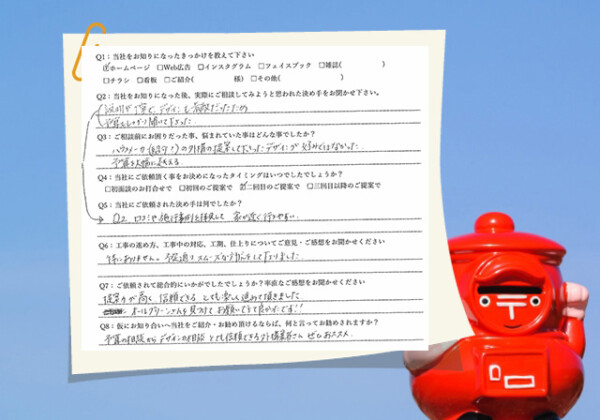 Q1:当社をお知りになったきっかけを教えて下さい
☑ホームページ □Web広告 □インスタグラム □フェイスブック □雑誌( )
□チラシ □看板 □ご紹介( 様) □その他( )
Q2:当社をお知りになった後、実際にご相談してみようと思われた決め手をお聞かせ下さい。
デザインも素敵だったため
Q3:ご相談前にお困りだった事、悩まれていた事はどんな事でしたか?
ハウスメーカー の外構の提案して下さったデザインが好みではなかった。
予算を大幅に超える
Q4:当社にご依頼頂く事をお決めになったタイミングはいつでしたでしょうか?
□初面談のお打合せで □初回のご提案で ☑二回目のご提案で □三回目以降のご提案で
Q5:当社にご依頼された決め手は何でしたか?
Q2、口コミや施行事例を拝見して 家が近く行きやすい。
Q6:工事の進め方、工事中の対応、工期、仕上りについてご意見・ご感想をお聞かせください
特にありません。予定通りスムーズな
Q7:ご依頼されて総合的にいかがでしたでしょうか?率直なご感想をお聞かせください
提案力が高く 信頼できる とても楽しく進めて頂きました
オールグリーンさんを見つけて お願いできて良かったです!!
Q8:仮にお知り合いへ当社をご紹介・お勧め頂けるならば、何と言ってお勧めされますか?
予算の相談からデザインの相談 とても信頼できる外構業者さん ぜひおススメ